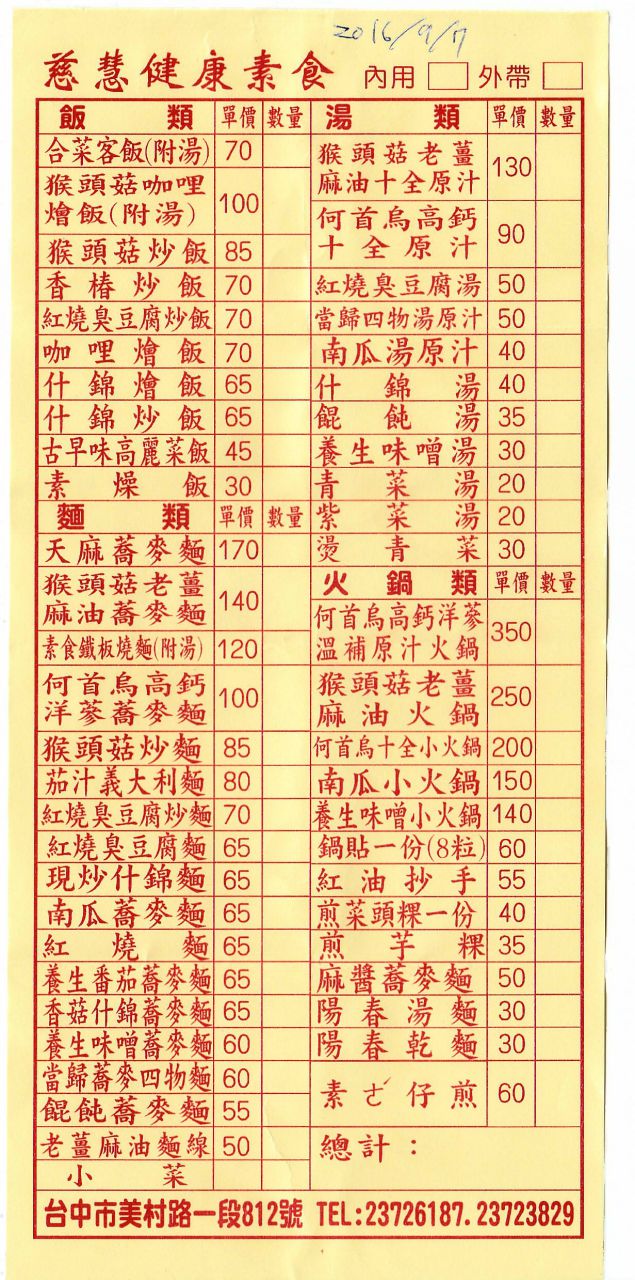 2016/9/17
慈慧健康素食 內用 外帶
飯類 單價 數量
合菜客飯(附湯) 70
猴頭菇咖哩
燴飯(附湯) 100
猴頭菇炒飯 85
香椿炒飯 70
紅燒臭豆腐炒飯 70
咖哩燴飯 70
什錦燴飯 65
什錦炒飯 65
古早味高麗菜飯 45
素燥飯 30
麵類 單價 數量
天麻蕎麥麵 170
猴頭菇老薑
麻油蕎麥麵 140
素食鐵板燒麵(附湯) 120
何首烏高鈣
洋蔘蕎麥麵 100
猴頭菇炒麵 85
茄汁義大利麵 80
紅燒臭豆腐炒麵 70
紅燒臭豆腐麵 65
現炒什錦麵 65
南瓜蕎麥麵 65
紅燒麵 65
養生番茄蕎麥麵 65
香菇什錦蕎麥麵 65
養生味噌蕎麥麵 60
當歸蕎麥四物麵 60
餛飩蕎麥麵 55
老薑麻油麵線 50
小菜
湯類 單價 數量
猴頭菇老薑
麻油十全原汁 130
何首烏高鈣
十全原汁 90
紅燒臭豆腐湯 50
當歸四物湯原汁 50
南瓜湯原汁 40
什錦湯 40
餛飩湯 35
養生味噌湯 30
青菜湯 20
紫菜湯 20
燙青菜 30
火鍋類 單價 數量
何首烏高鈣洋蔘
溫補原汁火鍋 350
猴頭菇老薑
麻油火鍋 250
何首烏十全小火鍋 200
南瓜小火鍋 150
養生味噌小火鍋 140
鍋貼一份(8粒) 60
紅油抄手 55
煎菜頭粿一份 40
煎芋粿 35
麻醬蕎麥麵 50
陽春湯麵 30
陽春乾麵 30
素ㄜˊ仔煎 60
總計：
台中市美村路一段812號 TEL:23726187.23723829